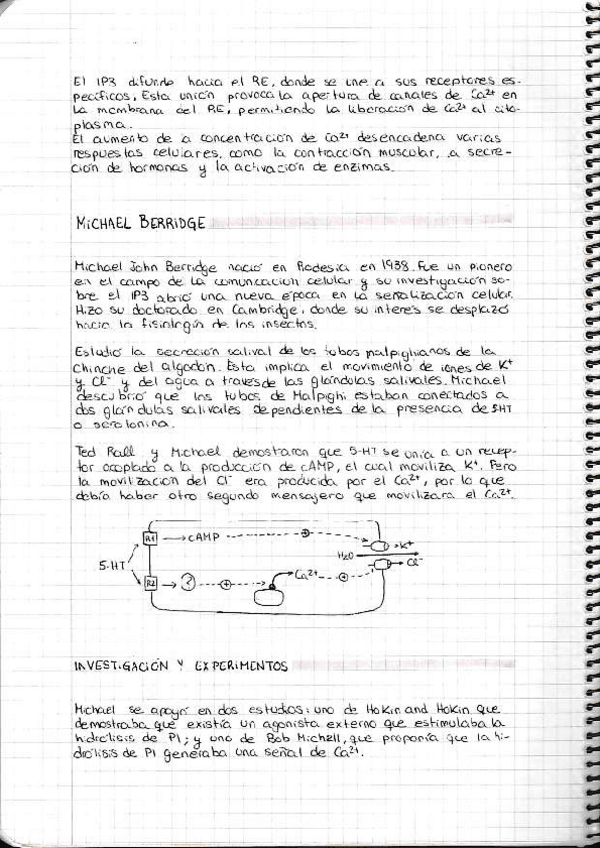 El IP3 difunde hacia el RE, donde se une a sus receptores es-
pecíficos. Esta unión provoca la apertura de canales de Ca2+ en
la membrana del RE, permitiendo la liberación de Ca2+ al cito-
plasma.
El aumento de a concentración de Ca2+ desencadena varias
respuestas celulares, como la contracción muscular, a secre-
ción de hormonas y la activación de enzimas.
MICHAEL BERRIDGE
Michael John Berridge nació en Rodesia en 1938. Fue un pionero
en el campo de la comunicación celular y su investigación so-
bre el IP3 abrió una nueva época en la señalización celular.
Hizo su doctorado en Cambridge, donde su interés se desplazó
hacia la fisiología de los insectos.
Estudió la secreción salival de los tubos malpighianos de la
chinche del algodón. Esta implica el movimiento de iones de K+
y Cl- y del agua a través de las glándulas salivales. Michael
descubrió que los tubos de Malpighi estaban conectados a
dos glándulas salivales dependientes de la presencia de 5HT
o serotonina.
Ted Rall y Michael demostraron que 5-HT se unía a un recep-
tor acoplado a la producción de cAMP, el cual moviliza K+. Pero
la movilización del Cl- era producida por el Ca2+, por lo que
debía haber otro segundo mensajero que movilizara el Ca2+.
R1 → cAMP ---⊕---→ K+
H2O
5-HT
→ Cl-
R2 → ? ---⊕---→ Ca2+ ---⊕---
INVESTIGACIÓN Y EXPERIMENTOS
Michael se apoyó en dos estudios: uno de Hokin and Hokin que
demostraba que existía un agonista externo que estimulaba la
hidrólisis de PI; y uno de Bob Michell, que proponía que la hi-
drólisis de PI generaba una señal de Ca2+.